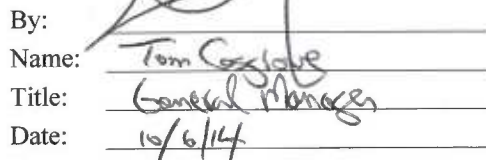 By:
Name: Tom Cosgrove
Title: General Manager
Date: 10/6/14